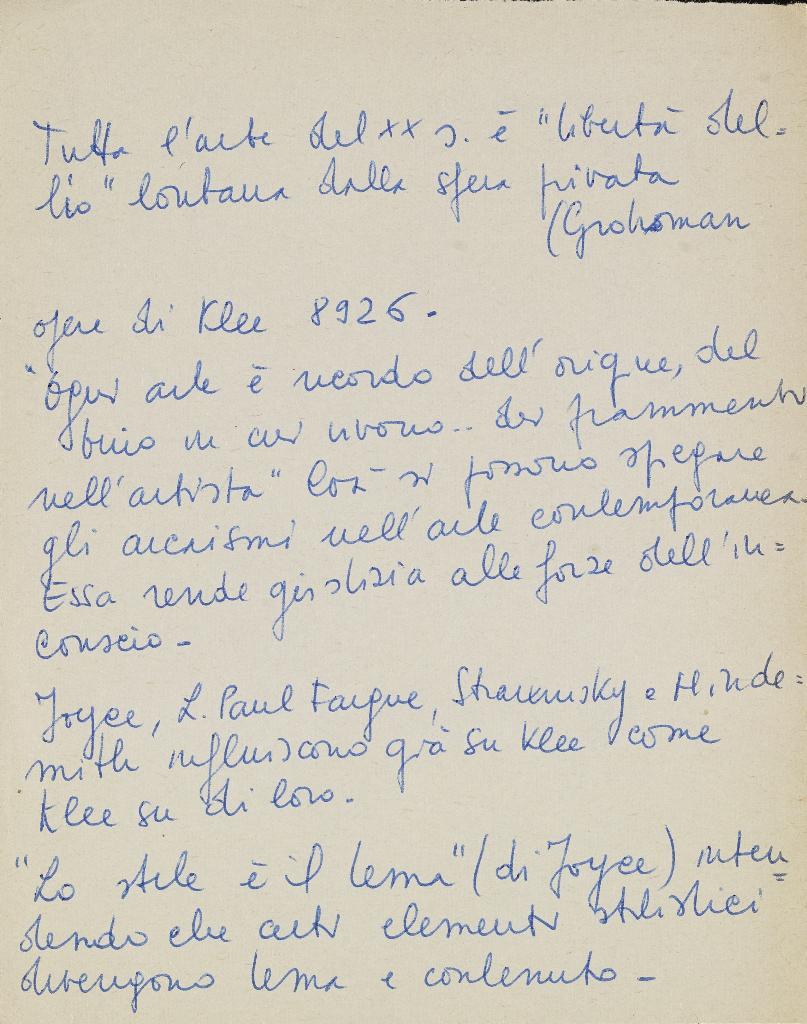 Tutta l'arte del XX s. è "libertà del=
l'io" lontana dalla sfera privata
(Grohoman
opere di Klee 8926.
"Ogni arte è ricordo dell'origine, del
buio in cui vivono.. dei frammenti
nell'artista" Così si possono spiegare
gli arcaismi nell'arte contemporanea.
Essa rende giustizia alle forze dell'in=
conscio -
Joyce, L. Paul Fargue, Strawinsky e Hinde=
mith influiscono già su Klee come
Klee su di loro.
"Lo stile è il tema" (di Joyce) inten=
dendo che certi elementi stilistici
divengono tema e contenuto -